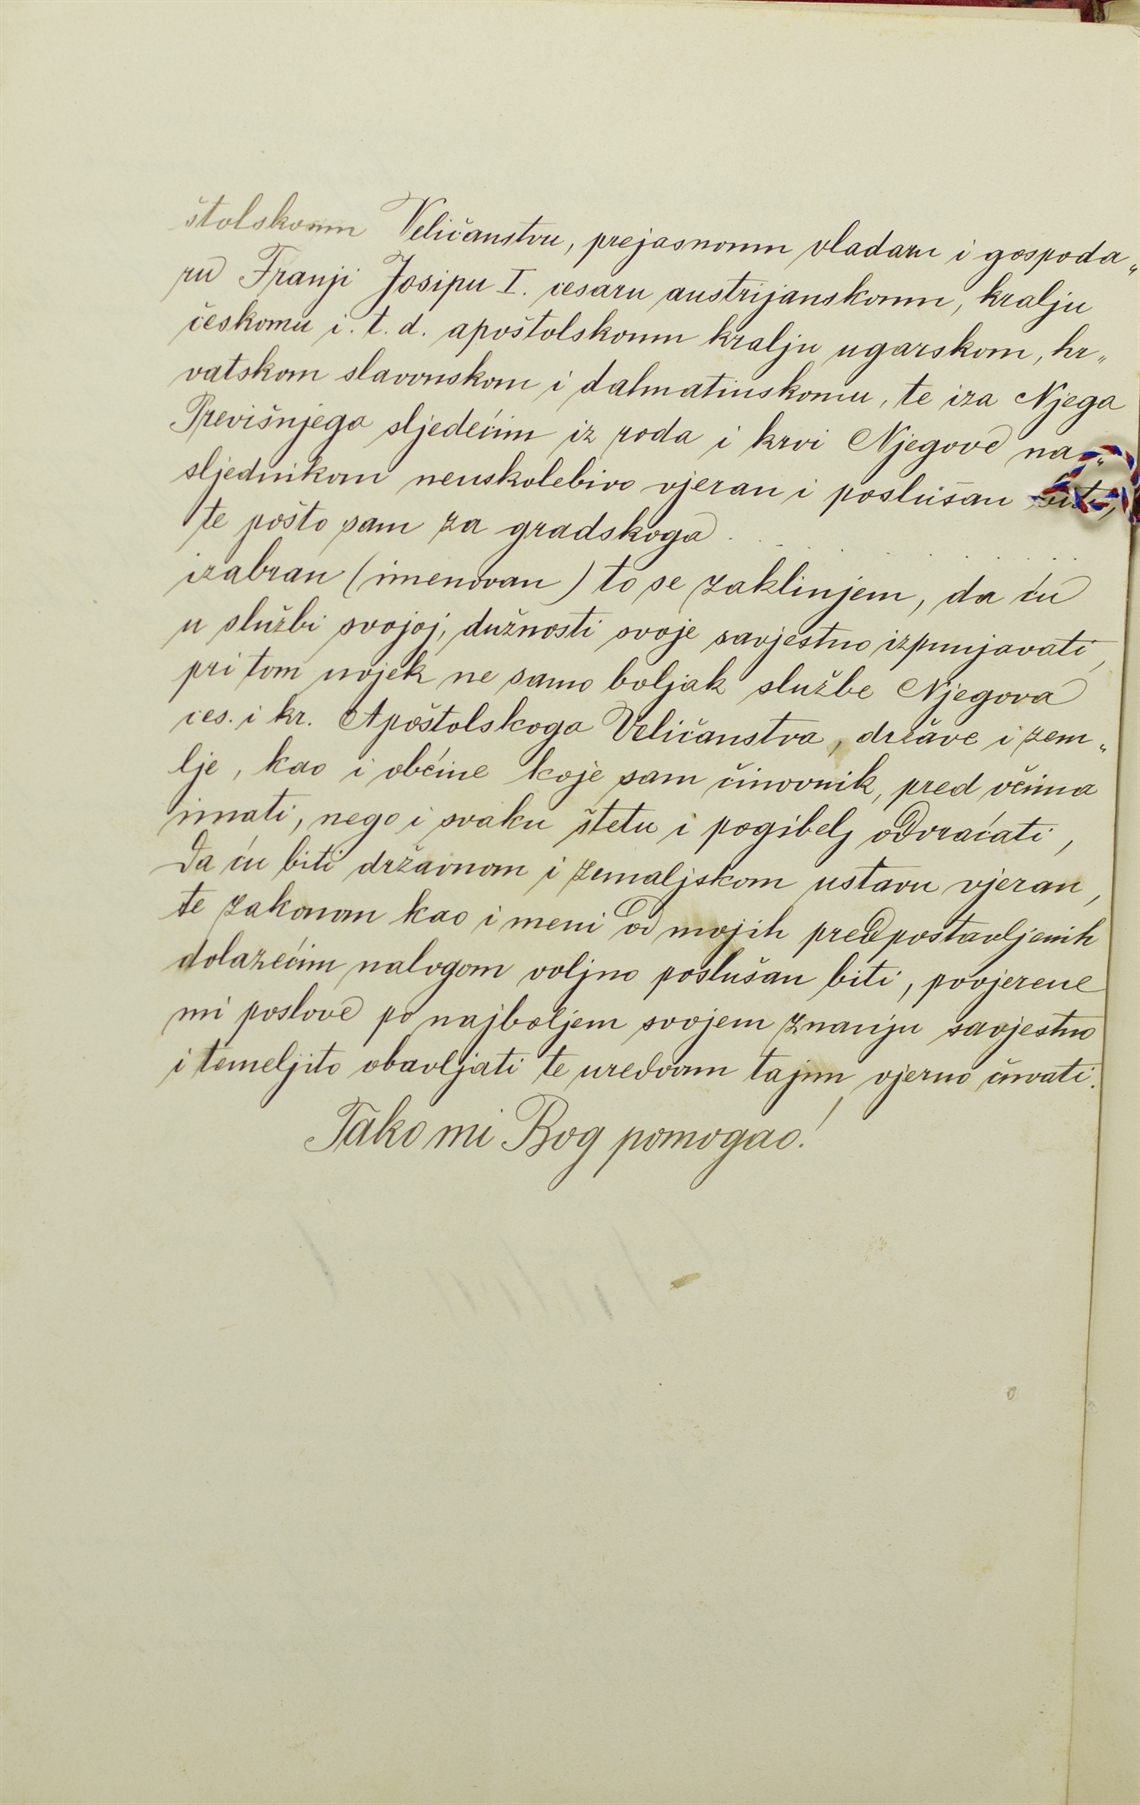 štolskomu Veličanstvu, prejasnomu vladaru i gospoda„
ru Franji Josipu I. cesaru austrijanskomu, kralju
českomu i. t. d. apoštolskomu kralju ugarskom, hr„
vatskom slavonskom i dalmatinskomu, te iza Njega
Previšnjega sljedećim iz roda i krvi Njegove na„
sljednikom neuskolebivo vjeran i poslušan biti,
te pošto sam za gradskoga . . . . . . . . .
izabran (imenovan) to se zaklinjem, da ću
u službi svojoj, dužnosti svoje savjestno izpunjavati,
pri tom uvjek ne samo boljak službe Njegova
ces. i kr. Apoštolskoga Veličanstva, države i zem„
lje, kao i obćine koje sam činovnik, pred očima
imati, nego i svaku štetu i pogibelj odvraćati,
da ću biti državnom i zemaljskom ustavu vjeran,
te zakonom kao i meni od mojih predpostavljenih
dolazećim nalogom voljno poslušan biti, povjerene
mi poslove po najboljem svojem znanju savjestno
i temeljito obavljati te uredovnu tajnu vjerno čuvati.
Tako mi Bog pomogao!